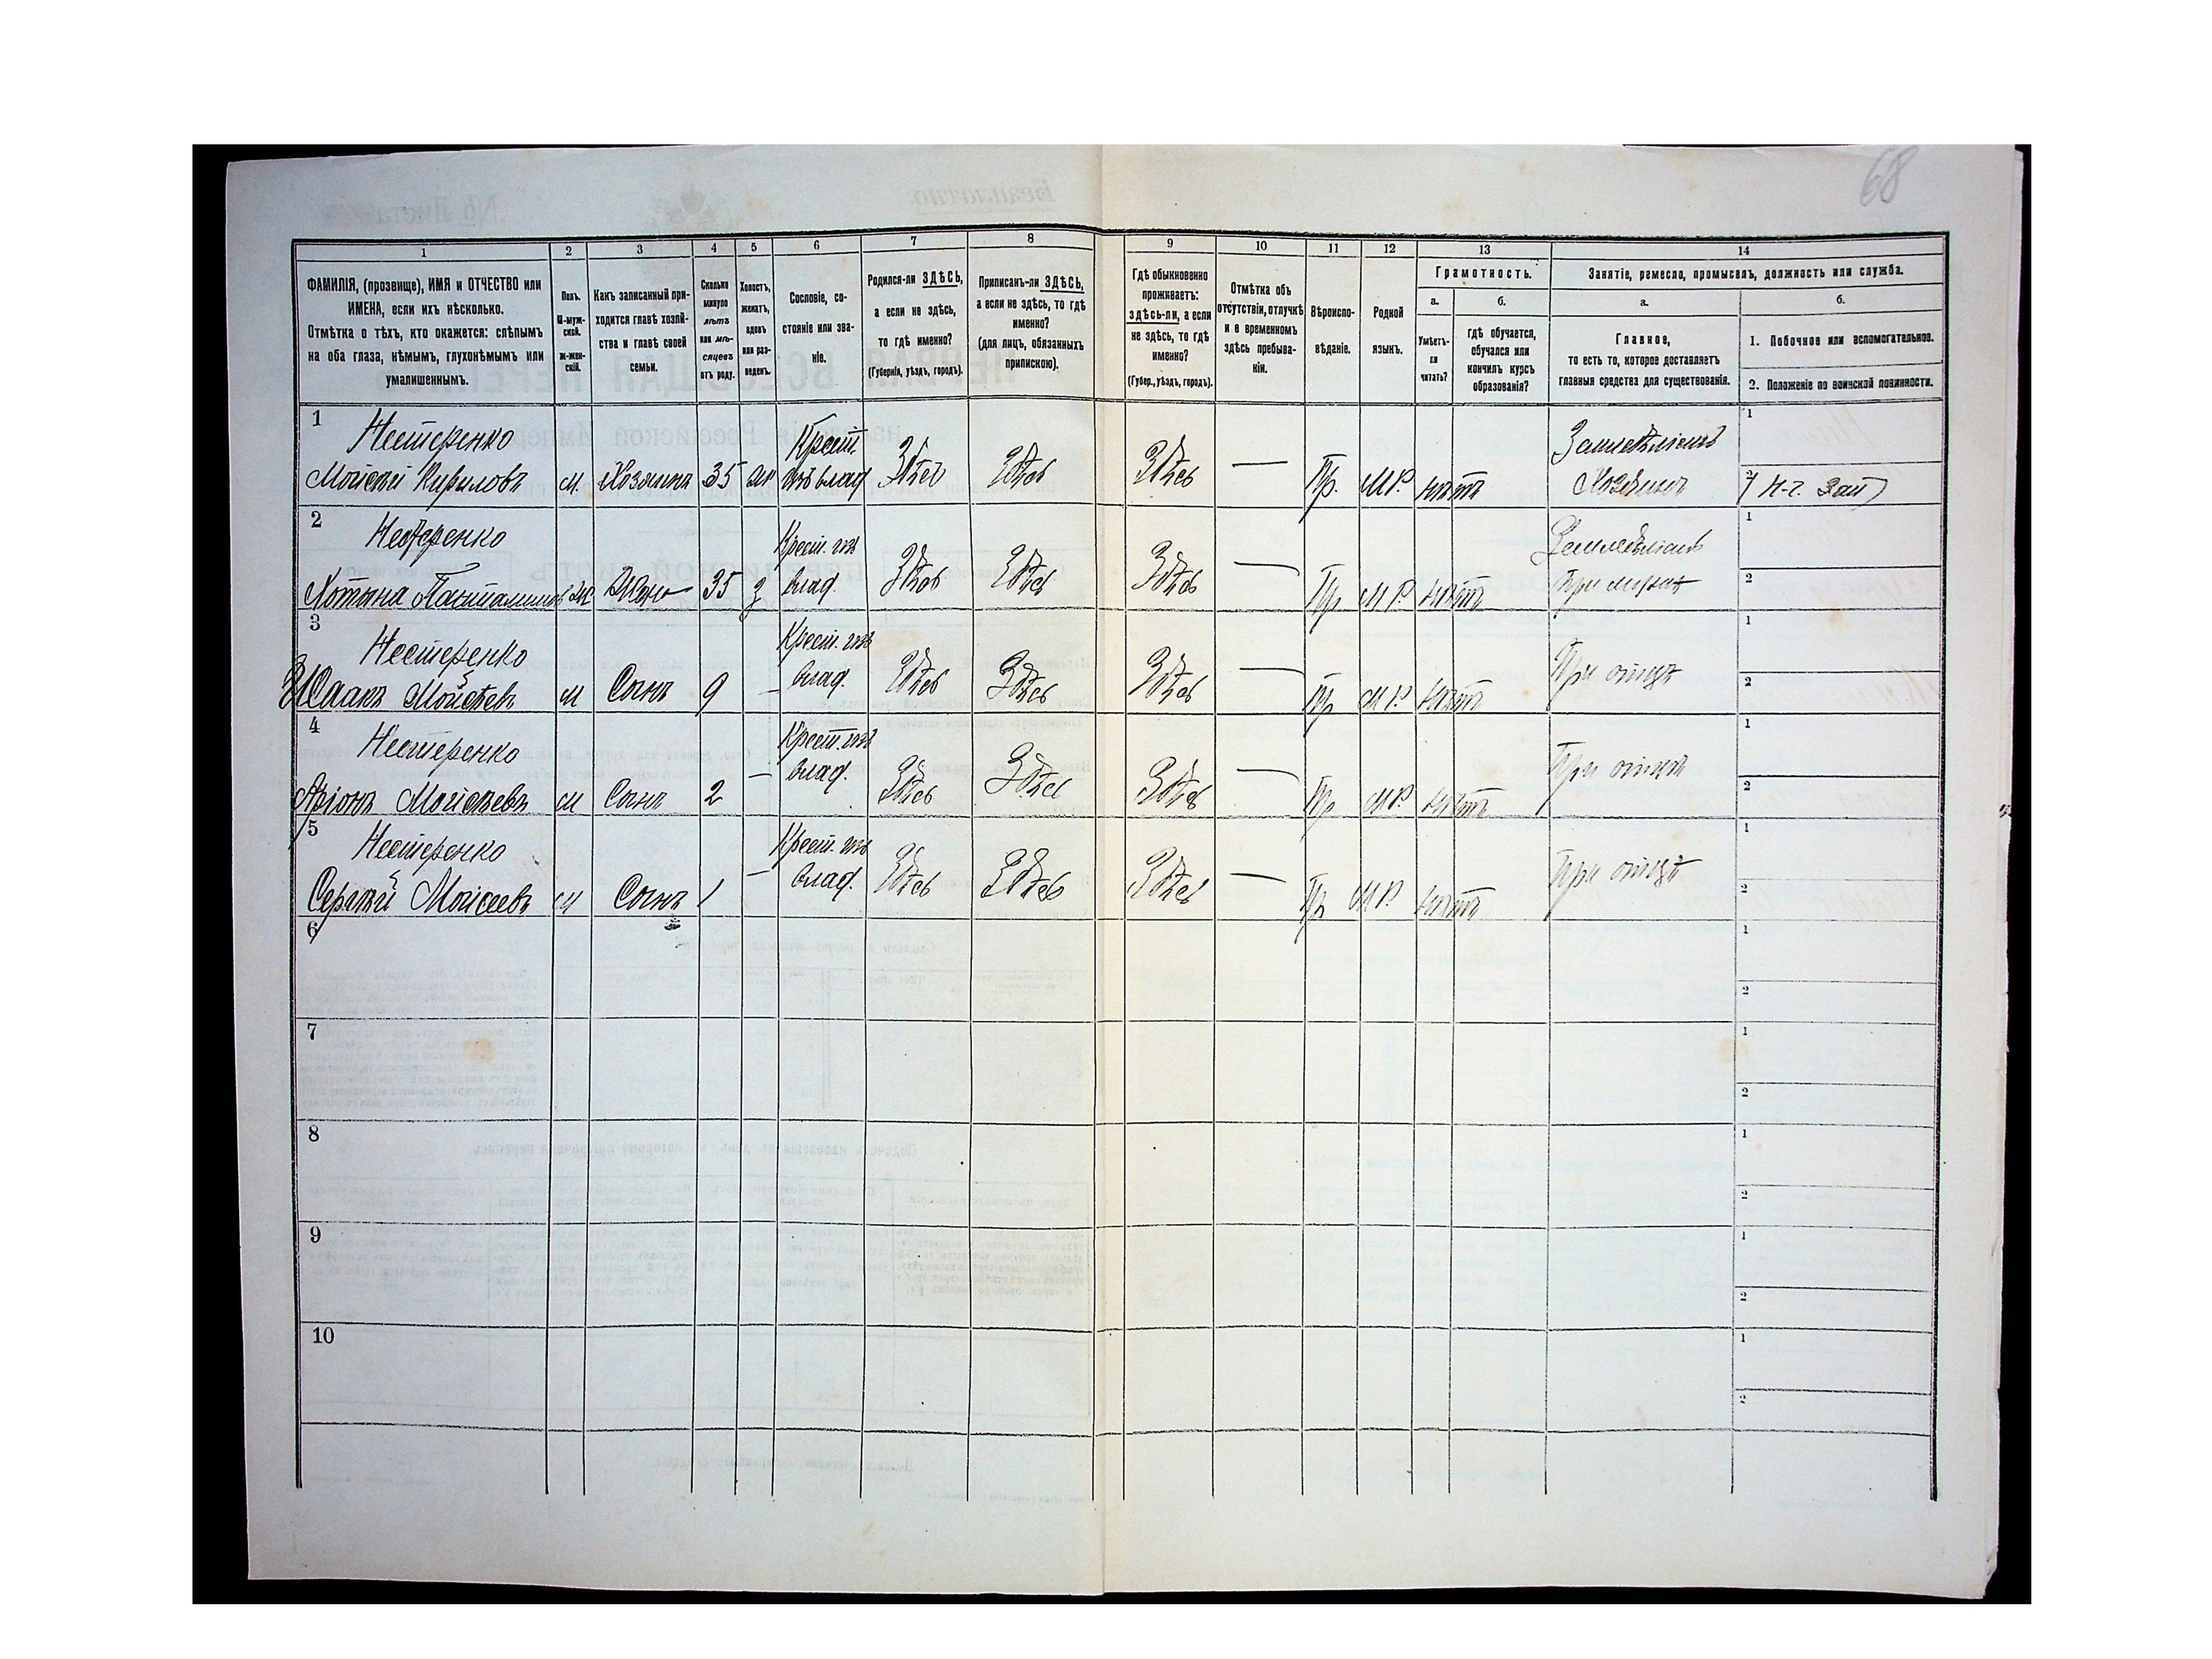 68
1
2
3
4
5
6
7
8
9
10
11
12
13
14
ФАМИЛІЯ, (прозвище), ИМЯ и ОТЧЕСТВО или
ИМЕНА, если ихъ нѣсколько.
Отмѣтка о тѣхъ, кто окажется: слѣпымъ
на оба глаза, нѣмымъ, глухонѣмымъ или
умалишеннымъ.
Полъ.
М-муж-
ской.
ж-жен-
скій.
Какъ записанный при-
ходится главѣ хозяй-
ства и главѣ своей
семьи.
Сколько
минуло
лѣтъ
или мѣ-
сяцевъ
отъ роду.
Холостъ,
женатъ,
вдовъ
или раз-
веденъ.
Сословіе, со-
стояніе или зва-
ніе.
Родился-ли ЗДѢСЬ,
а если не здѣсь,
то гдѣ именно?
(Губернія, уѣздъ, городъ).
Приписанъ-ли ЗДѢСЬ,
а если не здѣсь, то гдѣ
именно?
(для лицъ, обязанныхъ
припискою).
Гдѣ обыкновенно
проживаетъ:
здѣсь-ли, а если
не здѣсь, то гдѣ
именно?
(Губер., уѣздъ, городъ).
Отмѣтка объ
отсутствіи, отлучкѣ
и о временномъ
здѣсь пребыва-
ніи.
Вѣроиспо-
вѣданіе.
Родной
языкъ.
Грамотность.
а.
Умѣетъ-
ли
читать?
б.
гдѣ обучается,
обучался или
кончилъ курсъ
образованія?
Занятіе, ремесло, промыселъ, должность или служба.
а.
Главное,
то есть то, которое доставляетъ
главныя средства для существованія.
б.
1. Побочное или вспомогательное.
2. Положеніе по воинской повинности.
1
Нестеренко
Мойсѣй Кириловъ м. Хозяинъ 35 Крест. Здѣсь Здѣсь Здѣсь — Пр. М.Р. нѣтъ Хозяинъ
1
2
2
Нестеренко
Жена 35 Крест. влад. Здѣсь Здѣсь Здѣсь — Пр М.Р. нѣтъ При мужѣ
1
2
3
Нестеренко
Исаакъ Мойсѣевъ м Сынъ 9 — Крест. влад. Здѣсь Здѣсь Здѣсь — Пр М.Р. нѣтъ При отцѣ
1
2
4
Нестеренко
Мойсѣевъ м Сынъ 2 — Крест. влад. Здѣсь Здѣсь Здѣсь — Пр М.Р. нѣтъ При отцѣ
1
2
5
Нестеренко
Сергѣй Мойсеевъ м Сынъ 1 — Крест. влад. Здѣсь Здѣсь Здѣсь — Пр М.Р. нѣтъ При отцѣ
1
2
6
1
2
7
1
2
8
1
2
9
1
2
10
1
2